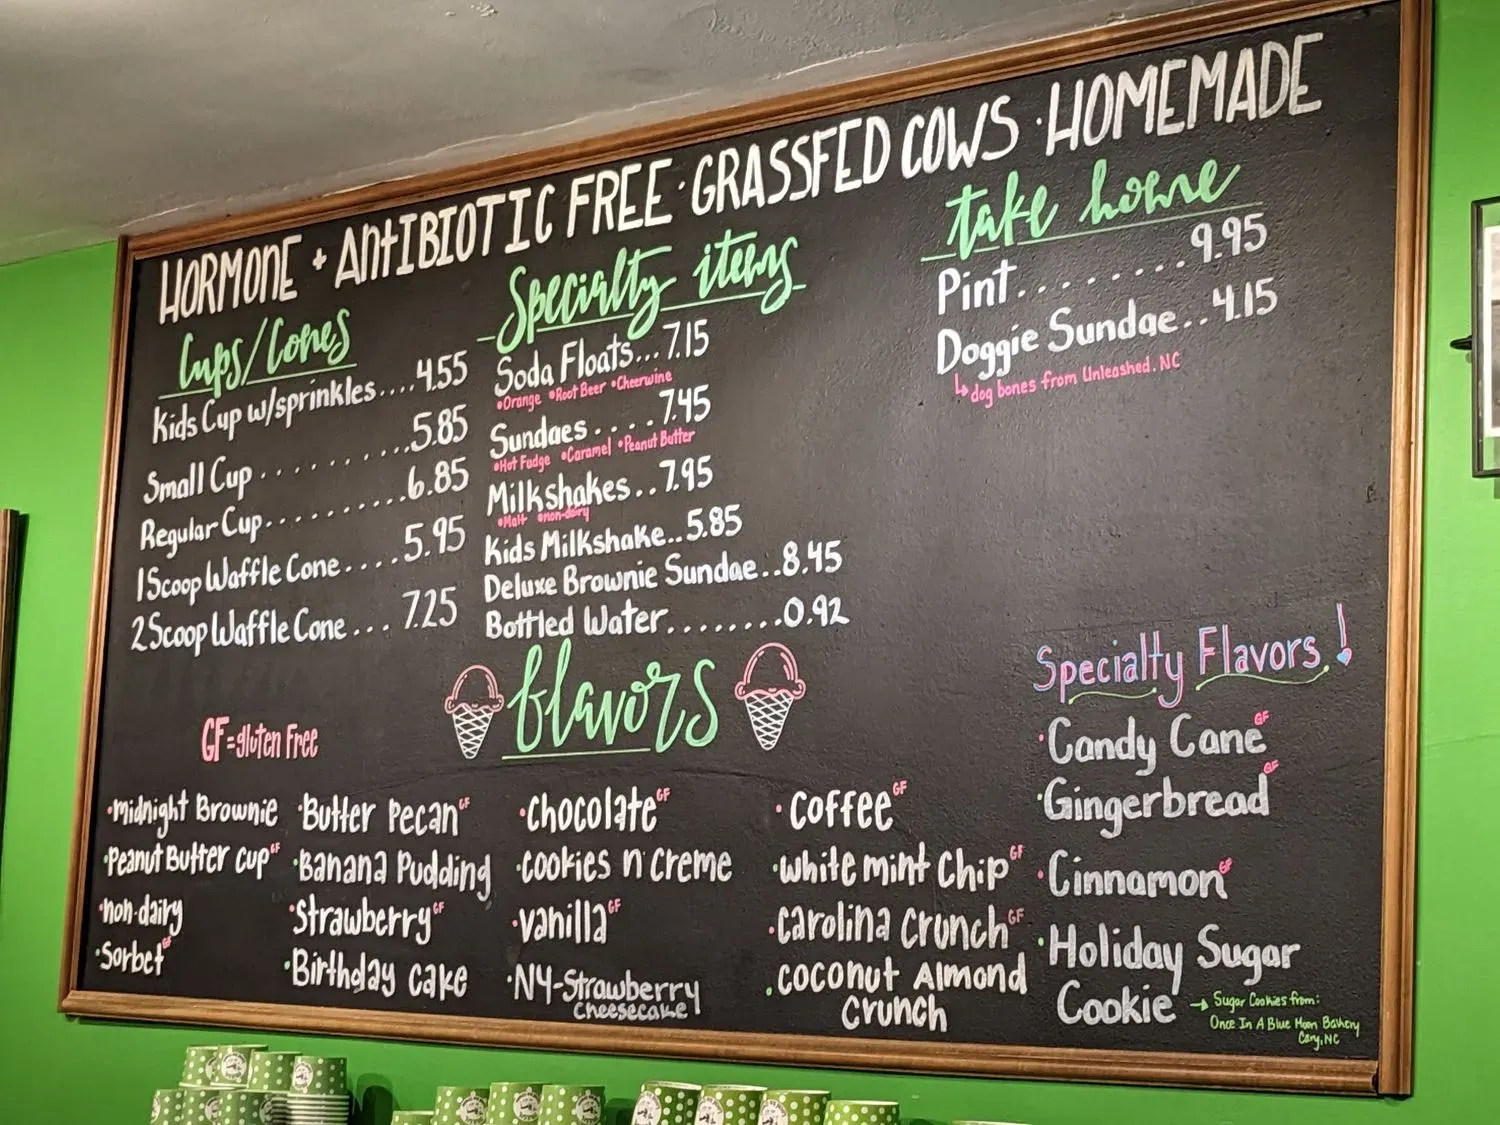 HORMONE + ANTIBIOTIC FREE · GRASSFED COWS · HOMEMADE
Cups/Cones
Kids Cup w/sprinkles....4.55
Small Cup..........5.85
Regular Cup..........6.85
1 Scoop Waffle Cone....5.95
2 Scoop Waffle Cone... 7.25
Specialty items
Soda Floats...7.15
•Orange •Root Beer •Cheerwine
Sundaes....7.45
•Hot Fudge •Caramel •Peanut Butter
Milkshakes..7.95
•Malt •non-dairy
Kids Milkshake..5.85
Deluxe Brownie Sundae..8.45
Bottled Water........0.92
take home
Pint........9.95
Doggie Sundae..4.15
↳ dog bones from Unleashed. NC
flavors
GF=gluten Free
·midnight Brownie
·Peanut Butter cup GF
·non-dairy
·Sorbet GF
·Butter Pecan GF
·Banana Pudding
·Strawberry GF
·Birthday cake
·chocolate GF
·cookies n creme
·vanilla GF
·NY-Strawberry
Cheesecake
·coffee GF
·white mint chip GF
·carolina crunch GF
·coconut Almond
crunch
Specialty Flavors!
·Candy Cane GF
·Gingerbread GF
·Cinnamon GF
·Holiday Sugar
Cookie → Sugar Cookies from:
Once In A Blue Moon Bakery
Cary, NC